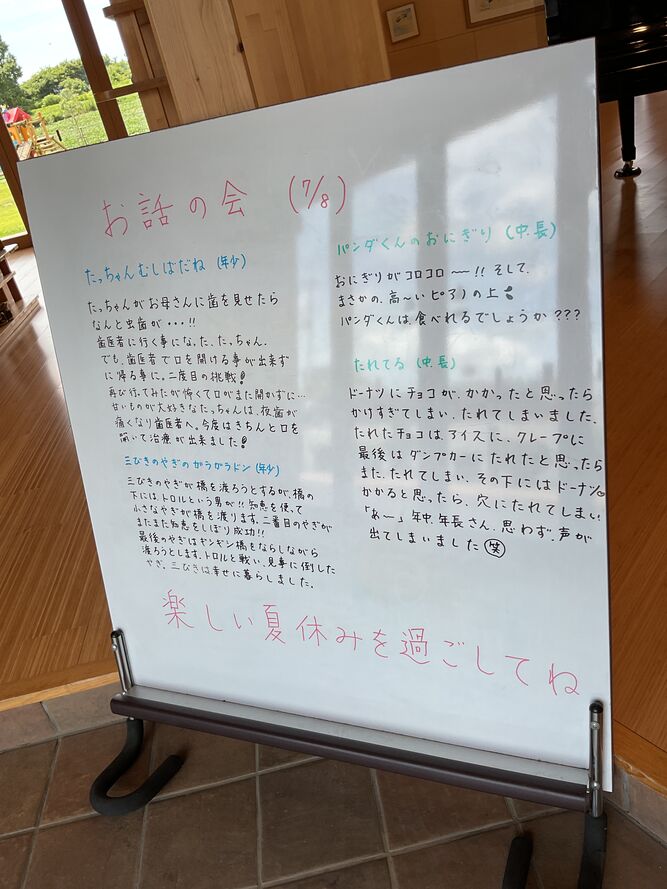 お話の会 (7/8)
たっちゃんむしばだね (年少)
たっちゃんがお母さんに歯を見せたら
なんと虫歯が・・・!!
歯医者に行く事になった、たっちゃん。
でも、歯医者で口を開ける事が出来ず
に帰る事に。二度目の挑戦!
再び行ってみたが怖くて口がまた開かずに…
甘いものが大好きなたっちゃんは、夜歯が
痛くなり歯医者へ。今度はきちんと口を
開いて治療が出来ました!
三びきのやぎのがらがらドン (年少)
三びきのやぎが橋を渡ろうとするが、橋の
下には、トロルという男が!!知恵を使って
小さなやぎが橋を渡ります。二番目のやぎが
またまた知恵をしぼり成功!!
最後のやぎはギシギシ橋をならしながら
渡ろうとします。トロルと戦い、見事に倒した
やぎ。三びきは幸せに暮らしました。
パンダくんのおにぎり (中.長)
おにぎりがコロコロ〜!!そして、
まさかの、高〜いピアノの上
パンダくんは、食べれるでしょうか???
たれてる (中.長)
ドーナツにチョコが、かかったと思ったら
かけすぎてしまい、たれてしまいました。
たれたチョコは、アイスに、クレープに
最後はダンプカーにたれたと思ったら
また、たれてしまい、その下にはドーナツ。
かかると思ったら、穴にたれてしまい
「あ〜」年中、年長さん、思わず、声が
出てしまいました 笑
楽しい夏休みを過ごしてね